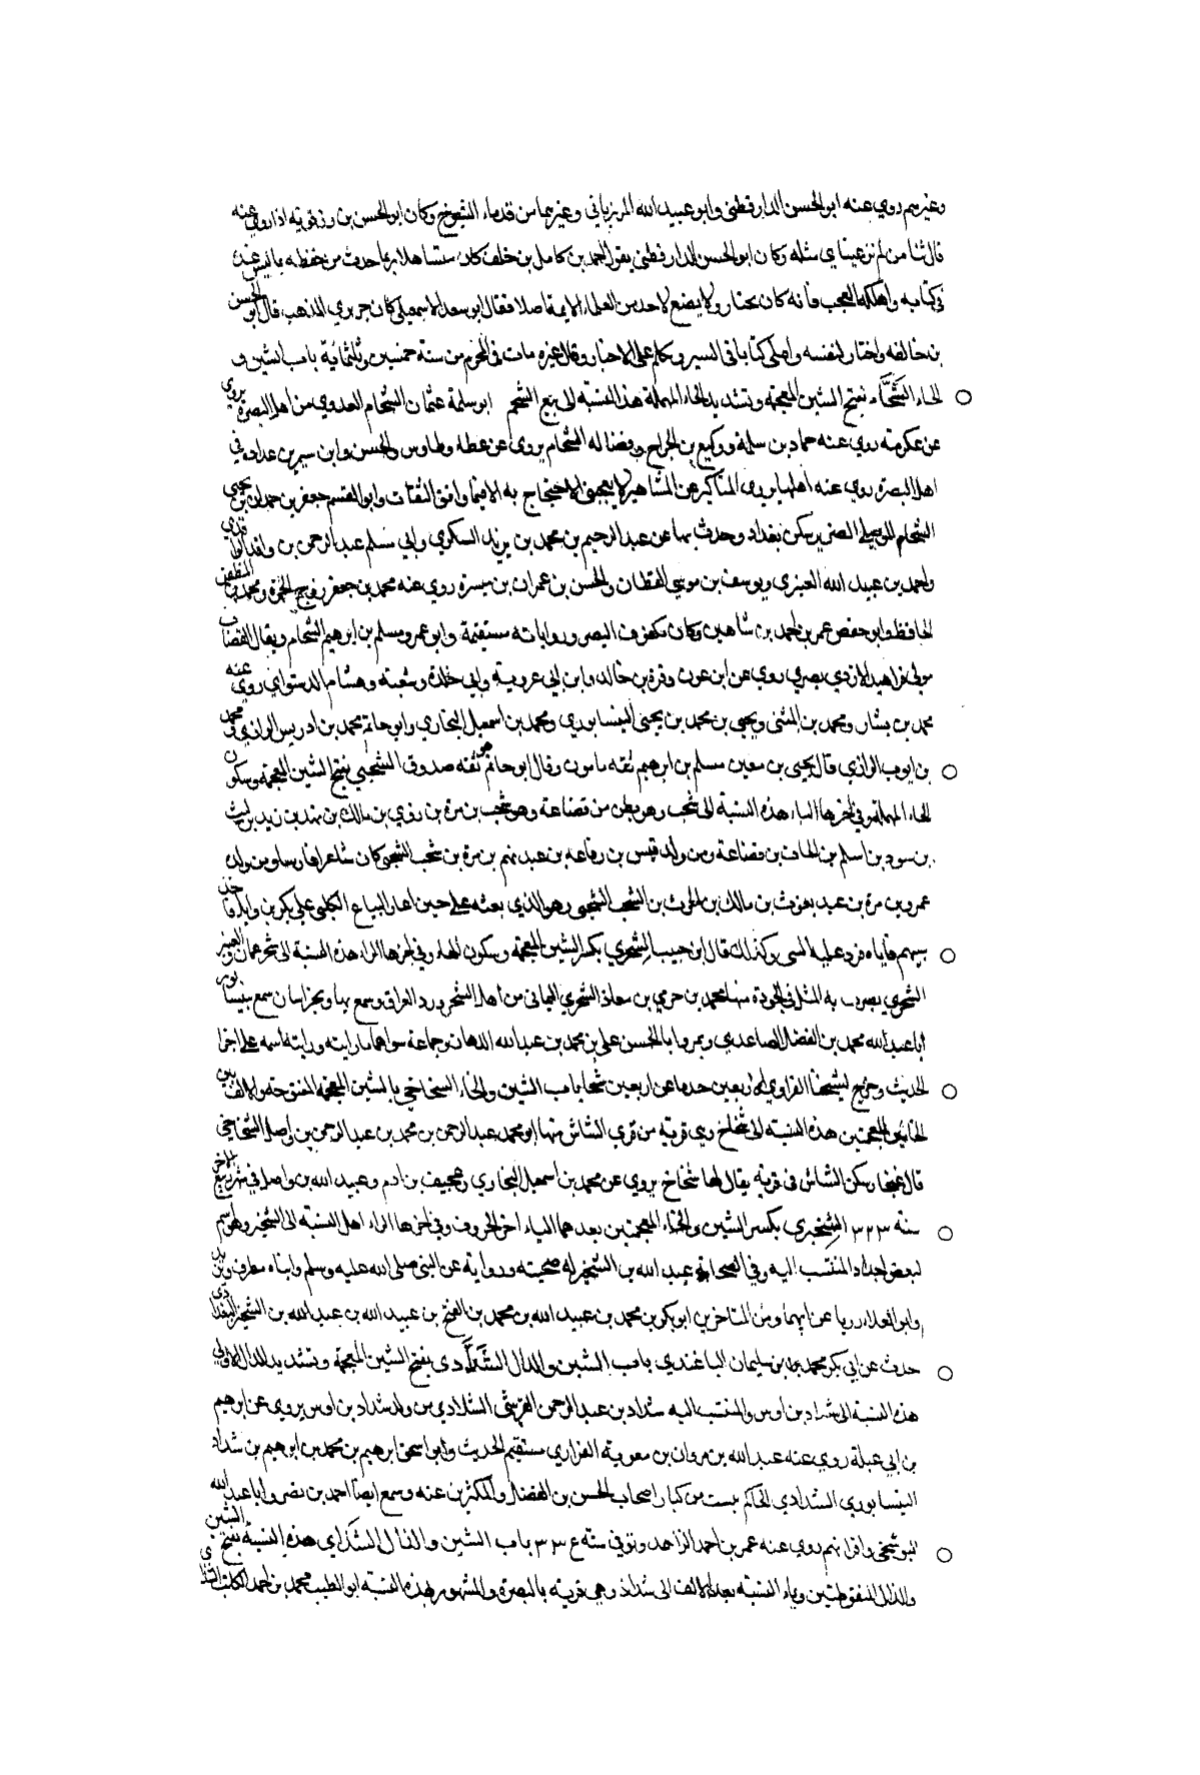 وغيرهم روي عنه ابو الحسن الدارقطني وابو عبيد الله المرزباني وغيرهما من قدماء الشيوخ وكان ابو الحسن بن رزقويه اذا روي عنه
قال ثنا من لم تر عيناي مثله وكان ابو الحسن الدارقطني يقول احمد بن كامل بن خلف كان متساهلا ربما حدث من حفظه بما ليس عنده
في كتابه واهلكه العجب فانه كان يختار ولا يضع لاحد من العلماء الايمة اصلا فقال ابو سعد الاسمعيلي كان جريري المذهب قال ابو الحسن
بن خالفه واختار لنفسه واملى كتابا في السير وتكلم على الاخبار وقال غيره مات في المحرم من سنة خمسين وثلثمائية باب الشين و
الحاء الشَّحَّام بفتح الشين المعجمة وتشديد الحاء المهملة هذا النسبة الى بيع الشحم ابو سلمة عثمان الشحام العدوي من اهل البصرة يروي
عن عكرمة روي عنه حماد بن سلمة ووكيع بن الجراح وفضاله الشحام يروى عن عطا وطاوس والحسن وابن سيرين عداده في
اهل البصرة روي عنه اهلها يروى المناكير عن المشاهير لا يعجبني الاحتجاج به الا فيما وافق الثقات وابو القسم جعفر بن حمدان بن يحيى
الشحام الموصلي الضرير سكن بغداد وحدث بها عن عبد الرحيم بن محمد بن يزيد السكري وابي مسلم عبد الرحمن بن واقد الواقدي
واحمد بن عبيد الله العنبري ويوسف بن موسي القطان والحسن بن عمران بن ميسرة روي عنه محمد بن جعفر زوج الحرة ومحمد بن المظفر
الحافظ وابو حفص عمر بن احمد بن شاهين وكان مكفوف البصر ورواياته مستقيمة وابو عمرو مسلم بن ابرهيم الشحام ويقال القصاب
مولى فراهيد الازدي بصري روي عن ابن عون وقرة بن خالد وابن ابي عروبة وابي خلدة وشعبة وهشام الدستواي روى عنه
محمد بن بشار ومحمد بن المثنى ويحيى بن محمد بن يحيى النيسابوري ومحمد بن اسمعيل البخاري وابو حاتم محمد بن ادريس الرازي ومحمد
بن ايوب الرازي قال يحيى بن معين مسلم بن ابرهيم ثقه مامون وقال ابو حاتم هو ثقه صدوق الشَّحْبي بفتح الشين المعجمة وسكون
الحاء المهملة وفي اخرها الباء هذه النسبة الى شحب وهو بطن من قضاعة وهو شحب بن مرة بن زوي بن مالك بن نهد بن زيد بن ليث
بن سود بن اسلم بن الحاف بن قضاعة ومن ولده قيس بن رفاعه بن عبد نهم بن مرة بن شحب الشحبي كان شاعرا فارسا ومن ولده
عمرو بن مرة بن عبد يغوث بن مالك بن الحرث بن الشحب الشحبي وهو الذي بعثه علي حين اغار البياع الكلبي علي بكر بن وايل فاخذ
سبيهم فاتاه فرد عليه السبي وكذلك قال ابن حبيب الشِحْري بكسر الشين المعجمة وسكون الحاء وفي اخرها الراء هذه النسبة الى شحر عمان والعنبر
الشحري يضرب به المثل في الجودة منها محمد بن حرمي بن معاذ الشحري اليماني من اهل الشحر ورد العراق وسمع بها وبخراسان سمع بنيسابور
ابا عبد الله محمد بن الفضل الصاعدي وبمرو ابا الحسن علي بن محمد بن عبد الله الدهان وجماعة سواهما رايته ورايت اسمه على اجزا
الحديث وخرج لشيخنا الفراوي اربعين حديثا عن اربعين شيخا باب الشين والخاء السخاخي بالشين المعجمة المفتوحة والالف بين
الخائين المعجمتين هذه النسبة الى شخاخ وهي قرية من قري الشاش منها ابو محمد عبد الرحمن بن محمد بن عبد الرحمن بن واصل الشخاخي
قال غنجار سكن الشاش في قرية يقال لها شخاخ يروي عن محمد بن اسمعيل البخاري وعجيف بن ادم وعبيد الله بن واصل في شهر ربيع الاخر
سنة ٣٢٣ الشِخيري بكسر الشين والخاء المعجمتين بعدهما الياء اخر الحروف وفي اخرها الراء اهل النسبة الى الشخير وهو اسم
لبعض اجداد المنتسب اليه وفي الصحابة عبد الله بن الشخير له صحبة ورواية عن النبى صلى الله عليه وسلم وابناه مطرف ويزيد
وابو العلاء رويا عن ابيهما ومن المتاخرين ابو بكر بن محمد بن عبيد الله بن محمد بن الفتح بن عبيد الله بن عبد الله بن الشخير البغدادي
حدث عن ابي بكر محمد بن سليمان الباغندي باب الشين والدال الشَدَّادى بفتح الشين المعجمة وتشديد الدال الاولي
هذه النسبة الى شداد بن اوس والمنتسب اليه شداد بن عبد الرحمن القرشي الشدادي من ولد شداد بن اوس يروي عن ابرهيم
بن ابي عبلة روي عنه عبد الله بن مروان بن معوية الفزاري مستقيم الحديث وابو اسحق ابرهيم بن محمد بن ابرهيم بن شداد
النيسابوري الشدادي الحاكم بست من كبار اصحاب الحسن بن الفضل والمكثرين عنه وسمع ايضا احمد بن نضر وابا عبد الله
البوشنجي واقرانهم روي عنه عمر بن احمد الزاهد وتوفي سنة ٣٣٤ باب الشين والذال الشذاي هذه النسبة بفتح الشين
والذال المنقوطتين وياء النسبة بعد الالف الى شذاذ وهي قرية بالبصرة والمشهور بهذه النسبة ابو الطيب محمد بن احمد الكاتب الشذاي